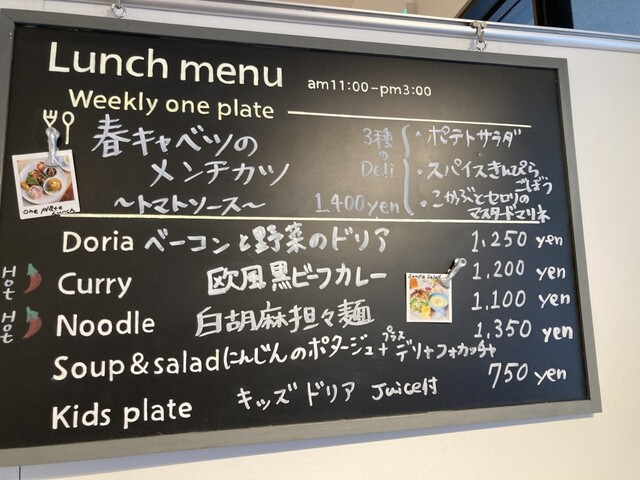 Lunch menu am11:00-pm3:00
Weekly one plate
春キャベツの
メンチカツ
〜トマトソース〜 1,400yen
3種のDeli
・ポテトサラダ
・スパイスきんぴらごぼう
・こかぶとセロリのマスタードマリネ
one plate lunch
Doria ベーコンと野菜のドリア 1,250 yen
Hot Curry 欧風黒ビーフカレー 1,200 yen
Hot Noodle 白胡麻担々麺 1,100 yen
Soup & Salad
Soup & salad にんじんのポタージュ+プラス デリ+フォカッチャ 1,350 yen
Kids plate キッズドリア Juice付 750 yen